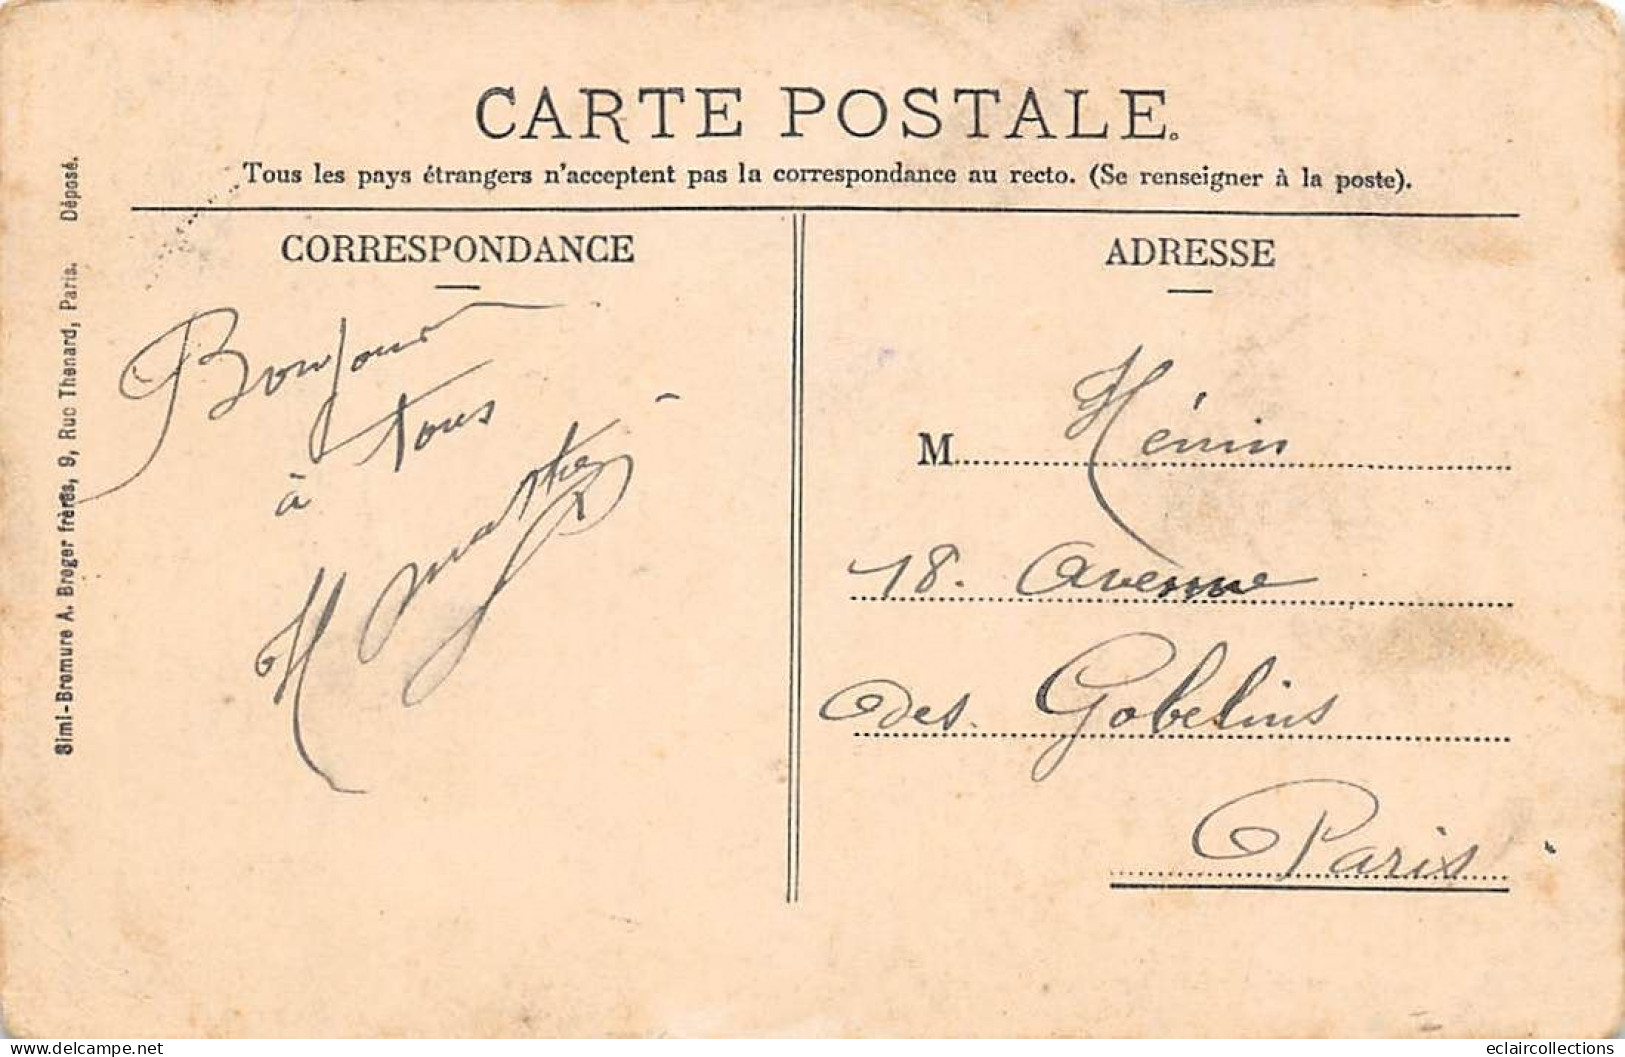 CARTE POSTALE.
Tous les pays étrangers n'acceptent pas la correspondance au recto. (Se renseigner à la poste).
CORRESPONDANCE
Bonjour
à tous
H
ADRESSE
M. Hénin
18. Avenue
des Gobelins
Paris
Simi-Bromure A. Breger frères, 9, Rue Thenard, Paris. Déposé.
eclaircollections